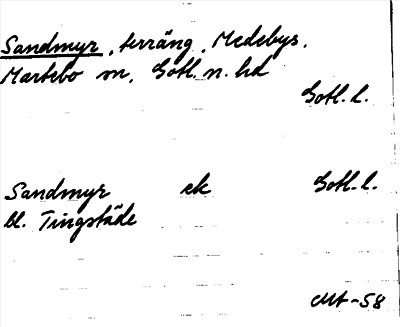 Sandmyr, terräng, Medebys,
Martebo sn, Gotl. n. hd
Gotl. l.
Sandmyr ek Gotl. l.
bl. Tingstäde
-58